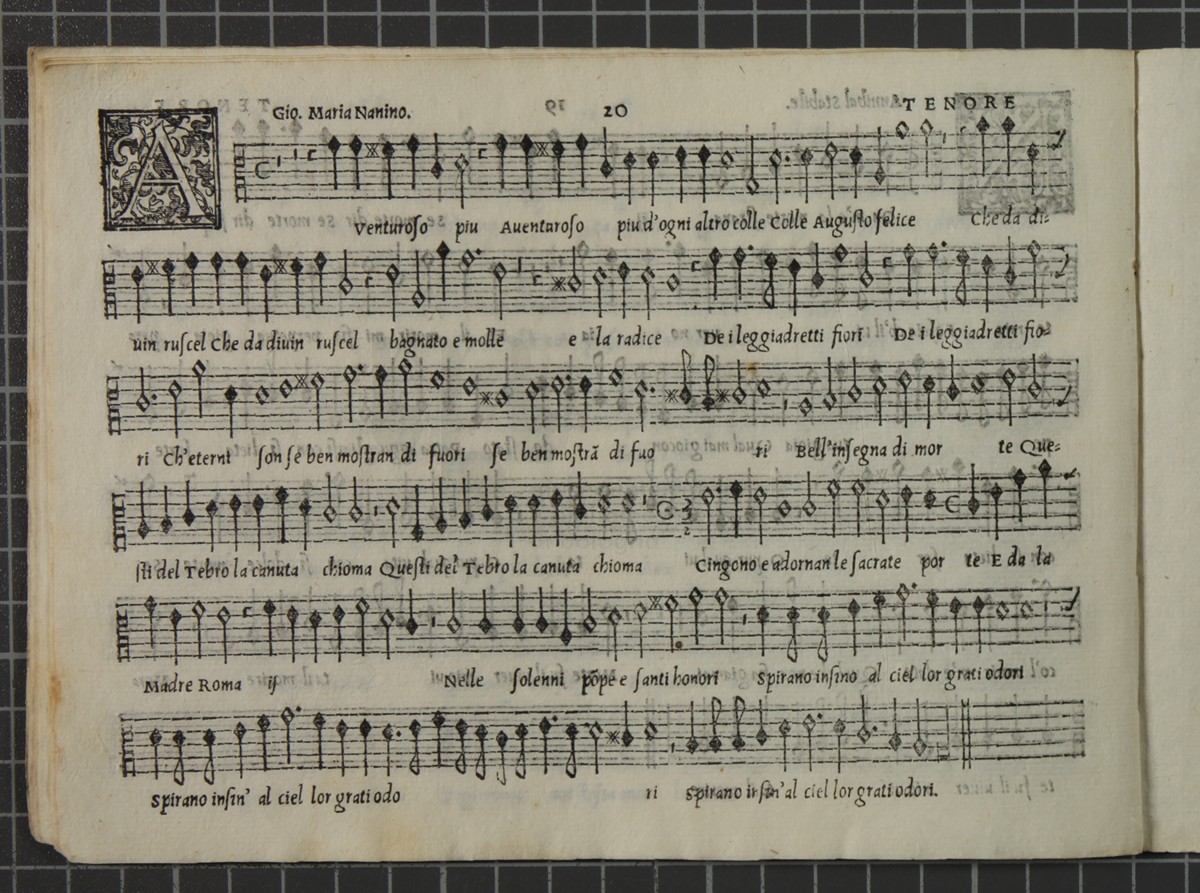 Gio. Maria Nanino. 20 TENORE
A venturoso piu Auenturoso piu d'ogni altro colle Colle Augusto felice Che da di-
uin ruscel Che da diuin ruscel bagnato e molle e la radice De i leggiadretti fiori De i leggiadretti fio-
ri Ch'eterni son se ben mostran di fuori se ben mostrã di fuo ri Bell'insegna di mor te Que-
sti del Tebro la canuta chioma Questi del Tebro la canuta chioma Cingono e adornan le sacrate por te E da la
Madre Roma ij Nelle solenni põpe e santi honori Spirano insino al ciel lor grati odori
Spirano insin' al ciel lor grati odo ri Spirano insin'al ciel lor grati odori.